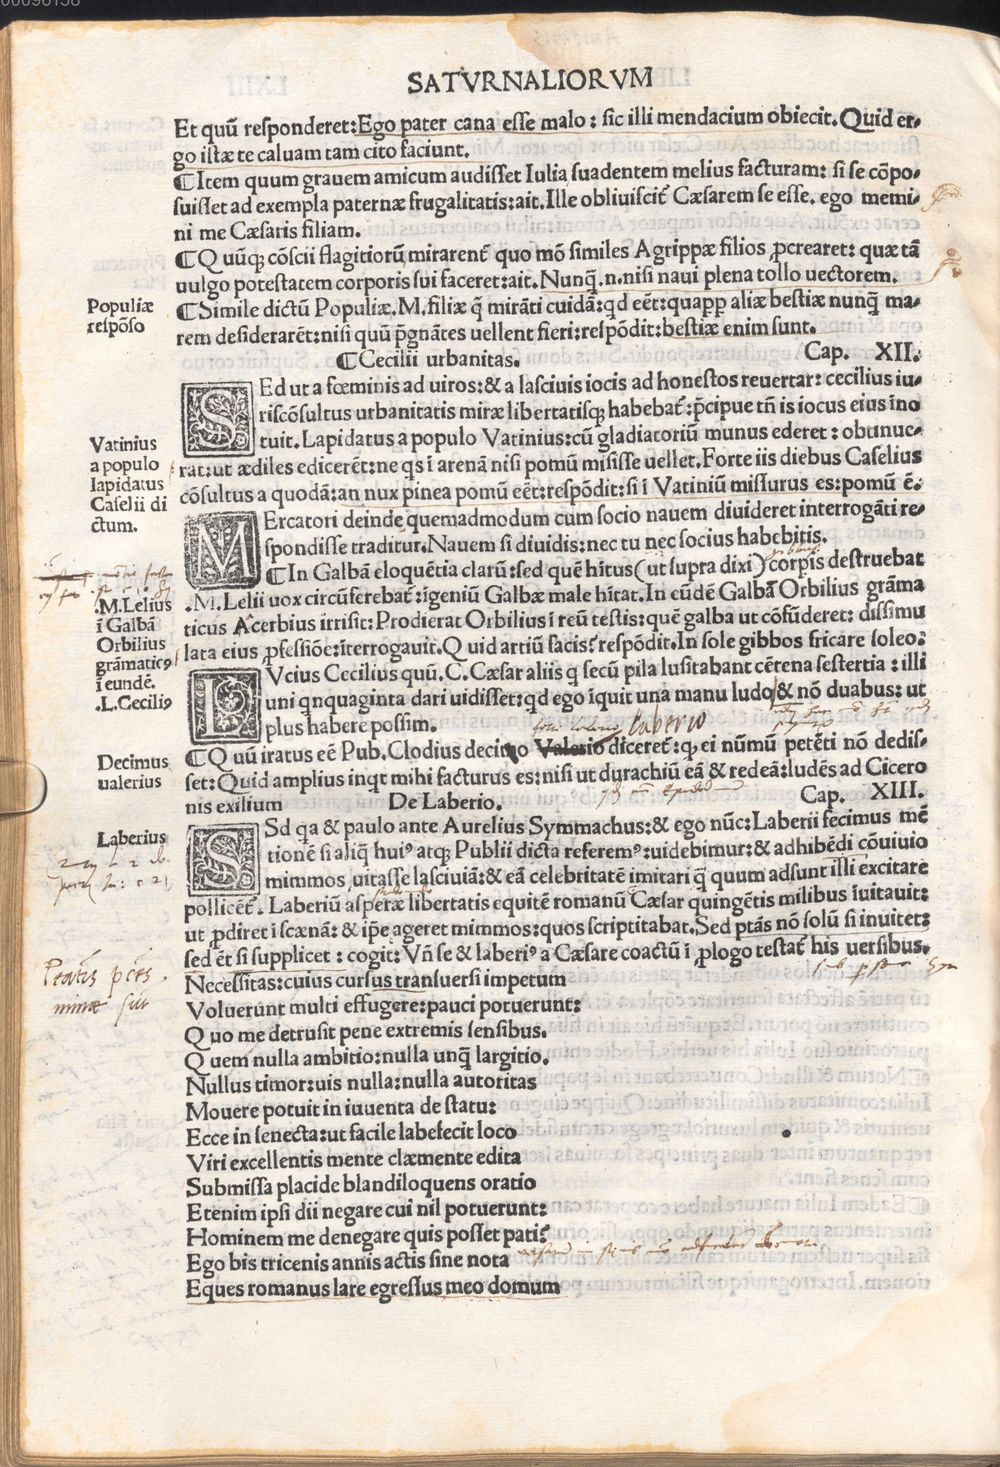 SATVRNALIORVM
Et quū responderet:Ego pater cana esse malo: sic illi mendacium obiecit.Quid er-
go istæ te caluam tam cito faciunt.
¶Item quum grauem amicum audisset Iulia suadentem melius facturam: si se cōpo-
suisset ad exempla paternæ frugalitatis:ait.Ille obliuiscit᷑ Cæsarem se esse. ego memi-
ni me Cæsaris filiam.
¶Quūq; cōscii flagitiorū mirarent᷑ quo mō similes Agrippæ filios ꝓcrearet: quæ tā
uulgo potestatem corporis sui faceret:ait.Nunq̄.n.nisi naui plena tollo uectorem.
Populiæ
respōso
¶Simile dictū Populiæ.M.filiæ q̄ mirāti cuidā:qd eēt:quaꝓp aliæ bestiæ nunq̄ ma-
rem desiderarēt:nisi quū p̄gnātes uellent fieri:respōdit:bestiæ enim sunt.
¶Cecilii urbanitas. Cap. XII.
SEd ut a fœminis ad uiros:& a lasciuis iocis ad honestos reuertar: cecilius iu-
riscōsultus urbanitatis miræ libertatisq; habebat᷑:p̄cipue tn̄ is iocus eius īno
tuit.Lapidatus a populo Vatinius:cū gladiatoriū munus ederet: obtinue-
rat:ut ædiles edicerēt:ne qs ī arenā nisi pomū misisse uellet.Forte iis diebus Caselius
cōsultus a quodā:an nux pinea pomū eēt:respōdit:si ī Vatiniū missurus es:pomū ē.
Vatinius
a populo
lapidatus
Caselii di
ctum.
MErcatori deinde quemadmodum cum socio nauem diuideret interrogāti re-
spondisse traditur.Nauem si diuidis:nec tu nec socius habebitis.
¶In Galbā eloquētia clarū:sed quē hītus (ut supra dixi) corpīs destruebat
.M.Lelii uox circūferebat᷑:īgeniū Galbæ male hītat.In eūdē Galbā Orbilius grāma
ticus Acerbius irrisit:Prodierat Orbilius ī reū testis:quē galba ut cōfūderet: dissimu
lata eius ꝓfessiōe:īterrogauit.Quid artiū facis?respōdit.In sole gibbos fricare soleo.
.M.Lelius
ī Galbā
Orbilius
grāmaticꝰ
ī eundē.
.L.Ceciliꝰ
LVcius Cecilius quū.C.Cæsar aliis q̄ secū pila lusitabant cētena sestertia: illi
uni qnquaginta dari uidisset:qd ego īquit una manu ludo/& nō duabus: ut
plus habere possim.
laberio
¶Quū iratus eē Pub.Clodius decimo Valerio diceret᷑:q; ei nūmū petēti nō dedis-
set:Quid amplius inqt mihi facturus es:nisi ut durachiū eā & redeā:ludēs ad Cicero
nis exilium De Laberio. Cap. XIII.
Decimus
ualerius
SEd qa & paulo ante Aurelius Symmachus:& ego nūc:Laberii fecimus mē
tionē si aliq̄ huiꝰ atq; Publii dicta referemꝰ:uidebimur:& adhibēdi cōuiuio
mimmos uitasse lasciuiā:& eā celebritatē imitari q̄ quum adsunt illi excitare
pollicēt᷑. Laberiū asperæ libertatis equitē romanū Cæsar quingētis milibus īuitauit:
ut ꝓdiret ī scænā: & ip̄e ageret mimmos:quos scriptitabat.Sed ptās nō solū si inuitet:
sed ēt si supplicet: cogit: Vn̄ se & laberiꝰ a Cæsare coactū ī ꝓlogo testat᷑ his uersibus.
Laberius
Necessitas:cuius cursus transuersi impetum
Voluerunt multi effugere:pauci potuerunt:
Quo me detrusit pene extremis sensibus.
Quem nulla ambitio:nulla unq̄ largitio.
Nullus timor:uis nulla:nulla autoritas
Mouere potuit in iuuenta de statu:
Ecce in senecta:ut facile labefecit loco
Viri excellentis mente clæmente edita
Submissa placide blandiloquens oratio
Etenim ipsi dii negare cui nil potuerunt:
Hominem me denegare quis posset pati?
Ego bis tricenis annis actis sine nota
Eques romanus lare egressus meo domum